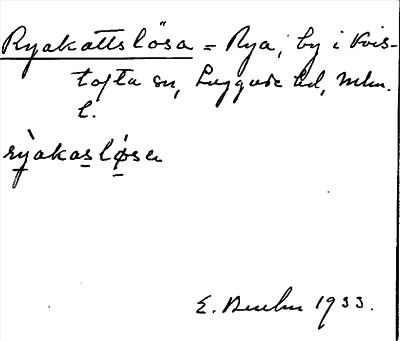 Ryakattslösa = Rya, by i Kvis-
tofta sn, Luggude hd, Mlm.
l.
rỳakasløsa
E. 1933.